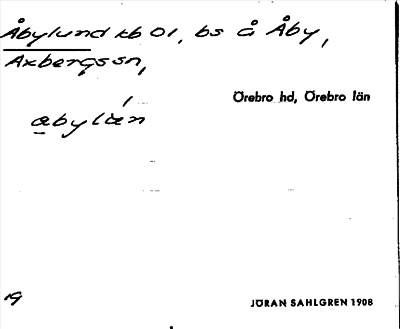 Åbylund kb 01, bs å Åby,
Axbergs sn,
Örebro hd, Örebro län
abylán
19
JÖRAN SAHLGREN 1908